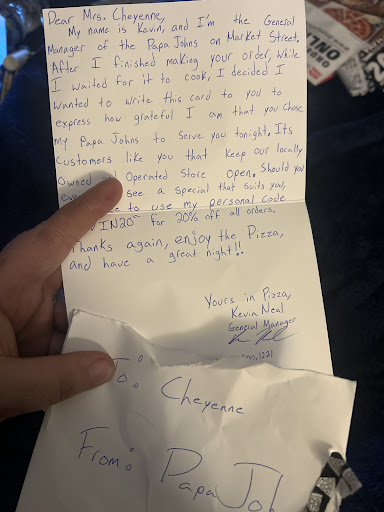 Dear Mrs. Cheyenne,
My name is Kevin, and I'm the General
Manager of the Papa Johns on Market Street.
After I finished making your order, while
I waited for it to cook, I decided I
wanted to write this card to you to
express how grateful I am that you chose
my Papa Johns to serve you tonight. Its
customers like you that keep our locally
owned Operated Store open. Should you
see a special that suits you,
to use my personal code
VIN20" for 20% off all orders.
Thanks again, enjoy the Pizza,
and have a great night!!
Yours in Pizza,
Kevin Neal
General Manager
1221
To: Cheyenne
From: Papa Joh